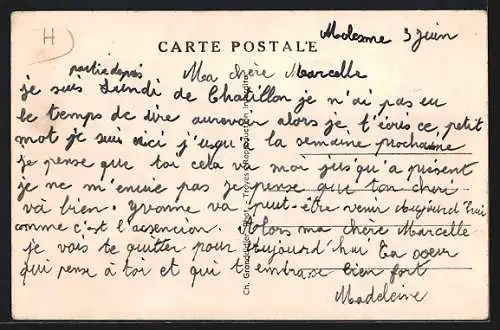 H
Molesme 3 juin
CARTE POSTALE
Ma chère Marcelle
partie depuis
je suis Lundi de Chatillon je n'ai pas eu
le temps de dire aurevoir alors je t'écris ce petit
mot je suis ici j'usqu'a la semaine prochaine
je pense que toi cela va moi jusqu'a présent
je ne m'ennuie pas je pense que ton cheri
va bien. Yvonne va peut-être venir Aujourd'hui
comme c'est l'ascencion. Alors ma chère Marcelle
je vais te quitter pour Aujourd'hui Ta soeur
qui pense à toi et qui t'embrasse bien fort
Madeleine